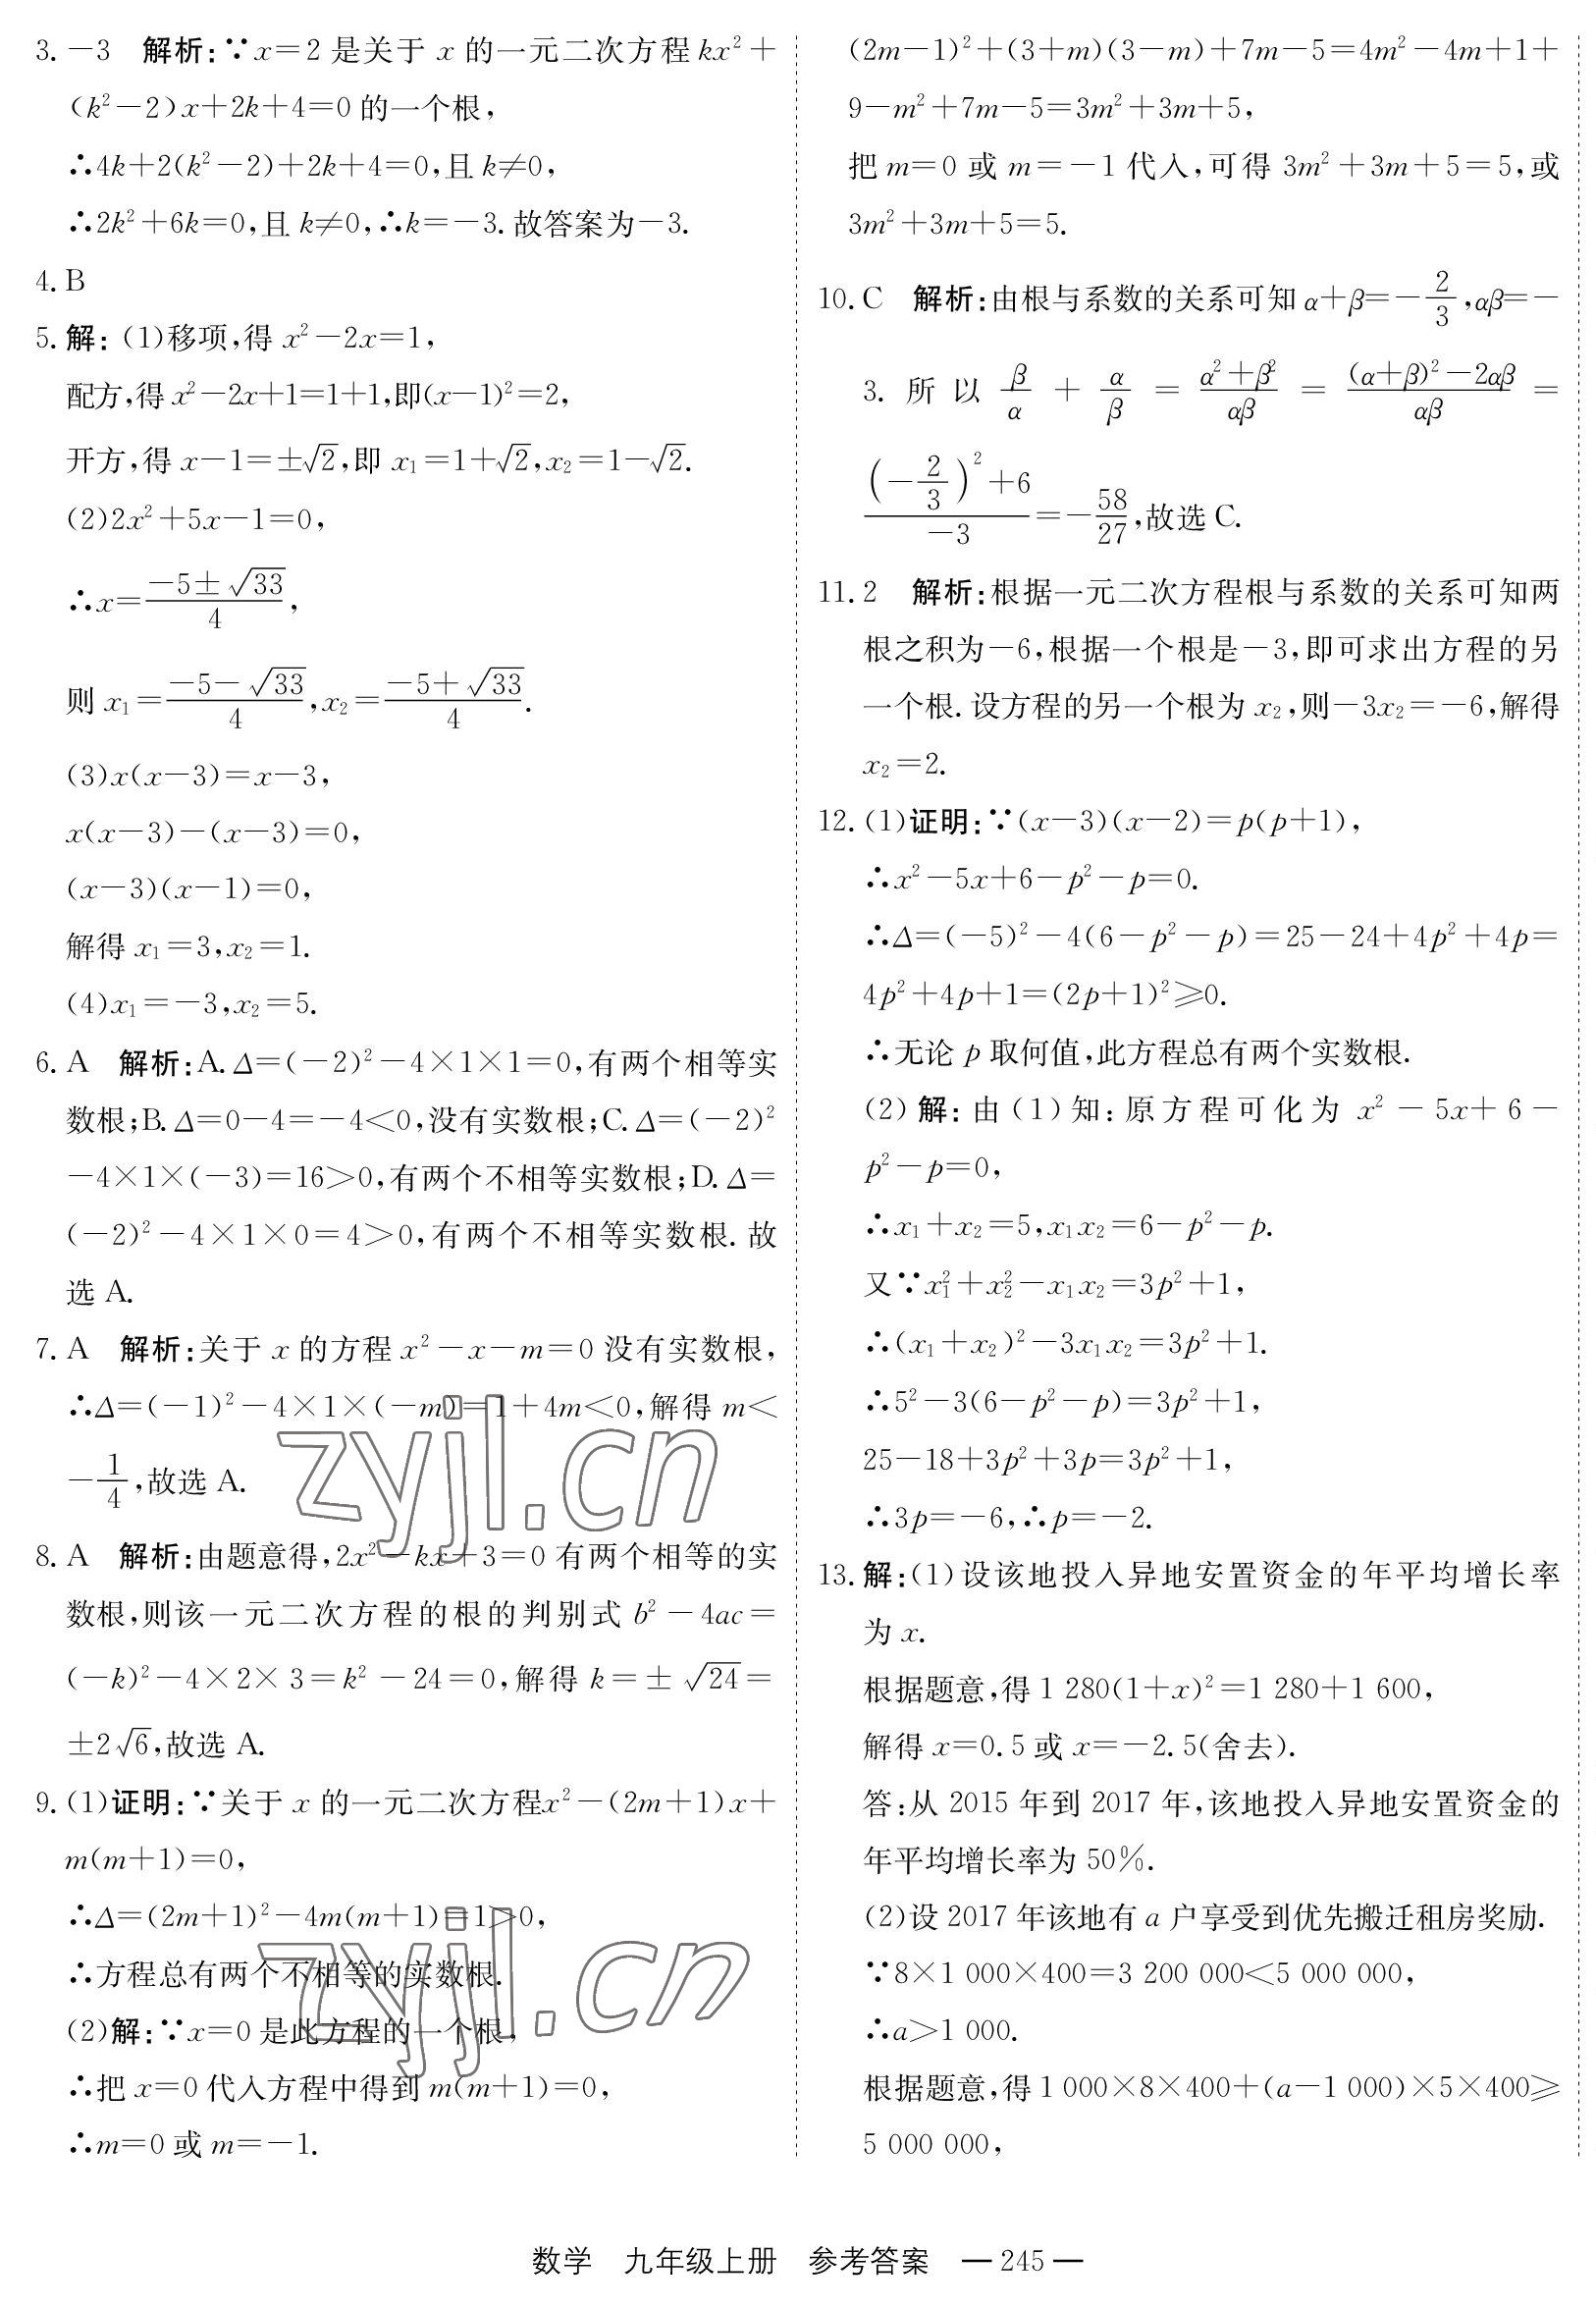 3. －3　解析:∵x＝2 是关于 x 的一元二次方程 kx²＋
(k²－2)x＋2k＋4＝0 的一个根,
∴4k＋2(k²－2)＋2k＋4＝0,且 k≠0,
∴2k²＋6k＝0,且 k≠0,∴k＝－3. 故答案为－3.
4. B
5. 解: (1)移项,得 x²－2x＝1,
配方,得 x²－2x＋1＝1＋1,即(x－1)²＝2,
开方,得 x－1＝±√2,即 x₁＝1＋√2,x₂＝1－√2.
(2)2x²＋5x－1＝0,
∴x＝(－5±√33)/4,
则 x₁＝(－5－√33)/4,x₂＝(－5＋√33)/4.
(3)x(x－3)＝x－3,
x(x－3)－(x－3)＝0,
(x－3)(x－1)＝0,
解得 x₁＝3,x₂＝1.
(4)x₁＝－3,x₂＝5.
6. A　解析:A. Δ＝(－2)²－4×1×1＝0,有两个相等实
数根;B. Δ＝0－4＝－4＜0,没有实数根;C. Δ＝(－2)²
－4×1×(－3)＝16＞0,有两个不相等实数根;D. Δ＝
(－2)²－4×1×0＝4＞0,有两个不相等实数根. 故
选 A.
7. A　解析:关于 x 的方程 x²－x－m＝0 没有实数根,
∴Δ＝(－1)²－4×1×(－m)＝1＋4m＜0,解得 m＜
－1/4,故选 A.
8. A　解析:由题意得,2x²－kx＋3＝0 有两个相等的实
数根,则该一元二次方程的根的判别式 b²－4ac＝
(－k)²－4×2×3＝k²－24＝0,解得 k＝±√24＝
±2√6,故选 A.
9. (1)证明:∵关于 x 的一元二次方程x²－(2m＋1)x＋
m(m＋1)＝0,
∴Δ＝(2m＋1)²－4m(m＋1)＝1＞0,
∴方程总有两个不相等的实数根.
(2)解:∵x＝0 是此方程的一个根,
∴把 x＝0 代入方程中得到 m(m＋1)＝0,
∴m＝0 或 m＝－1.
zyjl.cn
zyjl.cn
(2m－1)²＋(3＋m)(3－m)＋7m－5＝4m²－4m＋1＋
9－m²＋7m－5＝3m²＋3m＋5,
把 m＝0 或 m＝－1 代入,可得 3m²＋3m＋5＝5,或
3m²＋3m＋5＝5.
10. C　解析:由根与系数的关系可知 α＋β＝－2/3,αβ＝－
3. 所以 β/α＋α/β＝(α²＋β²)/αβ＝((α＋β)²－2αβ)/αβ＝
((－2/3)²＋6)/－3＝－58/27,故选 C.
11. 2　解析:根据一元二次方程根与系数的关系可知两
根之积为－6,根据一个根是－3,即可求出方程的另
一个根. 设方程的另一个根为 x₂,则－3x₂＝－6,解得
x₂＝2.
12. (1)证明:∵(x－3)(x－2)＝p(p＋1),
∴x²－5x＋6－p²－p＝0.
∴Δ＝(－5)²－4(6－p²－p)＝25－24＋4p²＋4p＝
4p²＋4p＋1＝(2p＋1)²≥0.
∴无论 p 取何值,此方程总有两个实数根.
(2)解:由(1)知:原方程可化为 x²－5x＋6－
p²－p＝0,
∴x₁＋x₂＝5,x₁x₂＝6－p²－p.
又∵x₁²＋x₂²－x₁x₂＝3p²＋1,
∴(x₁＋x₂)²－3x₁x₂＝3p²＋1.
∴5²－3(6－p²－p)＝3p²＋1,
25－18＋3p²＋3p＝3p²＋1,
∴3p＝－6,∴p＝－2.
13. 解:(1)设该地投入异地安置资金的年平均增长率
为 x.
根据题意,得 1 280(1＋x)²＝1 280＋1 600,
解得 x＝0.5 或 x＝－2.5(舍去).
答:从 2015 年到 2017 年,该地投入异地安置资金的
年平均增长率为 50%.
(2)设 2017 年该地有 a 户享受到优先搬迁租房奖励.
∵8×1 000×400＝3 200 000＜5 000 000,
∴a＞1 000.
根据题意,得 1 000×8×400＋(a－1 000)×5×400≥
5 000 000,
数学　九年级上册　参考答案　— 245 —